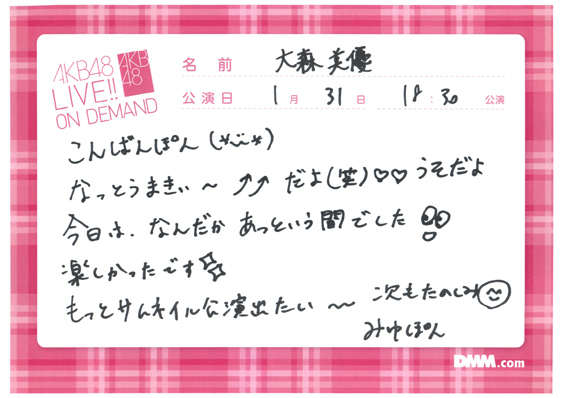 AKB48
LIVE!!
ON DEMAND
AKB
48
名前 大森美優
公演日 1月31日 18:30公演
こんばんぽん(*ˊᵕˋ*)
なっとうまきぃ〜⤴⤴だよ(笑)♡♡うそだよ
今日は、なんだかあっという間でした
楽しかったです
もっとサムネイル公演出たい〜 次もたのしみ
みゆぽん
DMM.com